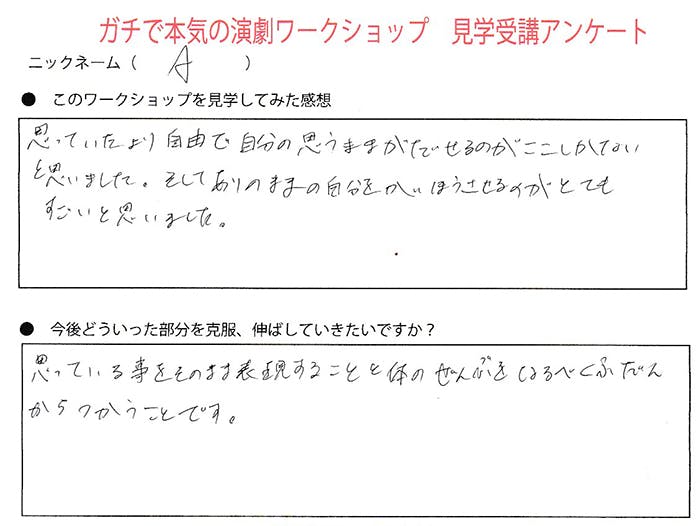 ガチで本気の演劇ワークショップ　見学受講アンケート
ニックネーム（　A　）
● このワークショップを見学してみた感想
思っていたより自由で自分の思うままがだせるのがここしかない
と思いました。そしてありのままの自分をかいほうさせるのがとても
すごいと思いました。
● 今後どういった部分を克服、伸ばしていきたいですか？
思っている事をそのまま表現することと体のぜんぶをなるべくふだん
からつかうことです。